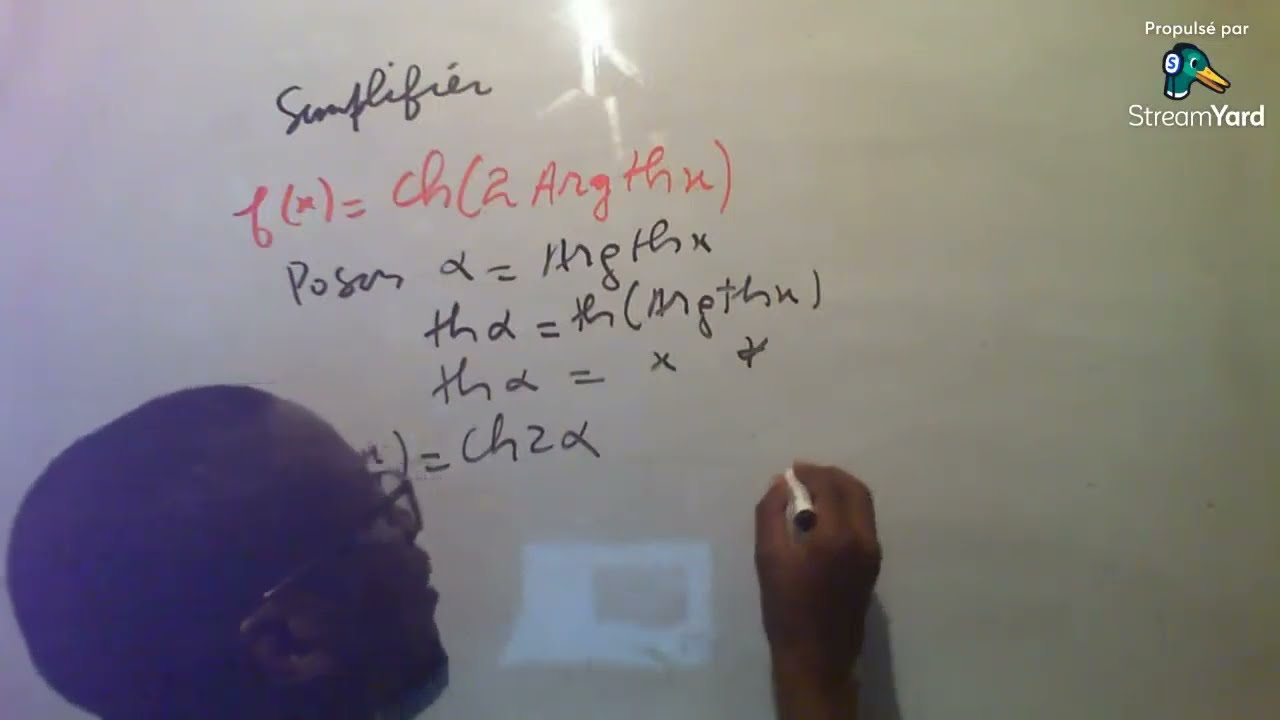 Propulsé par
StreamYard
Simplifier
f(x) = Ch(2 Argthx)
Posons α = Argthx
thα = th(Argthx)
thα = x *
x) = Ch2α